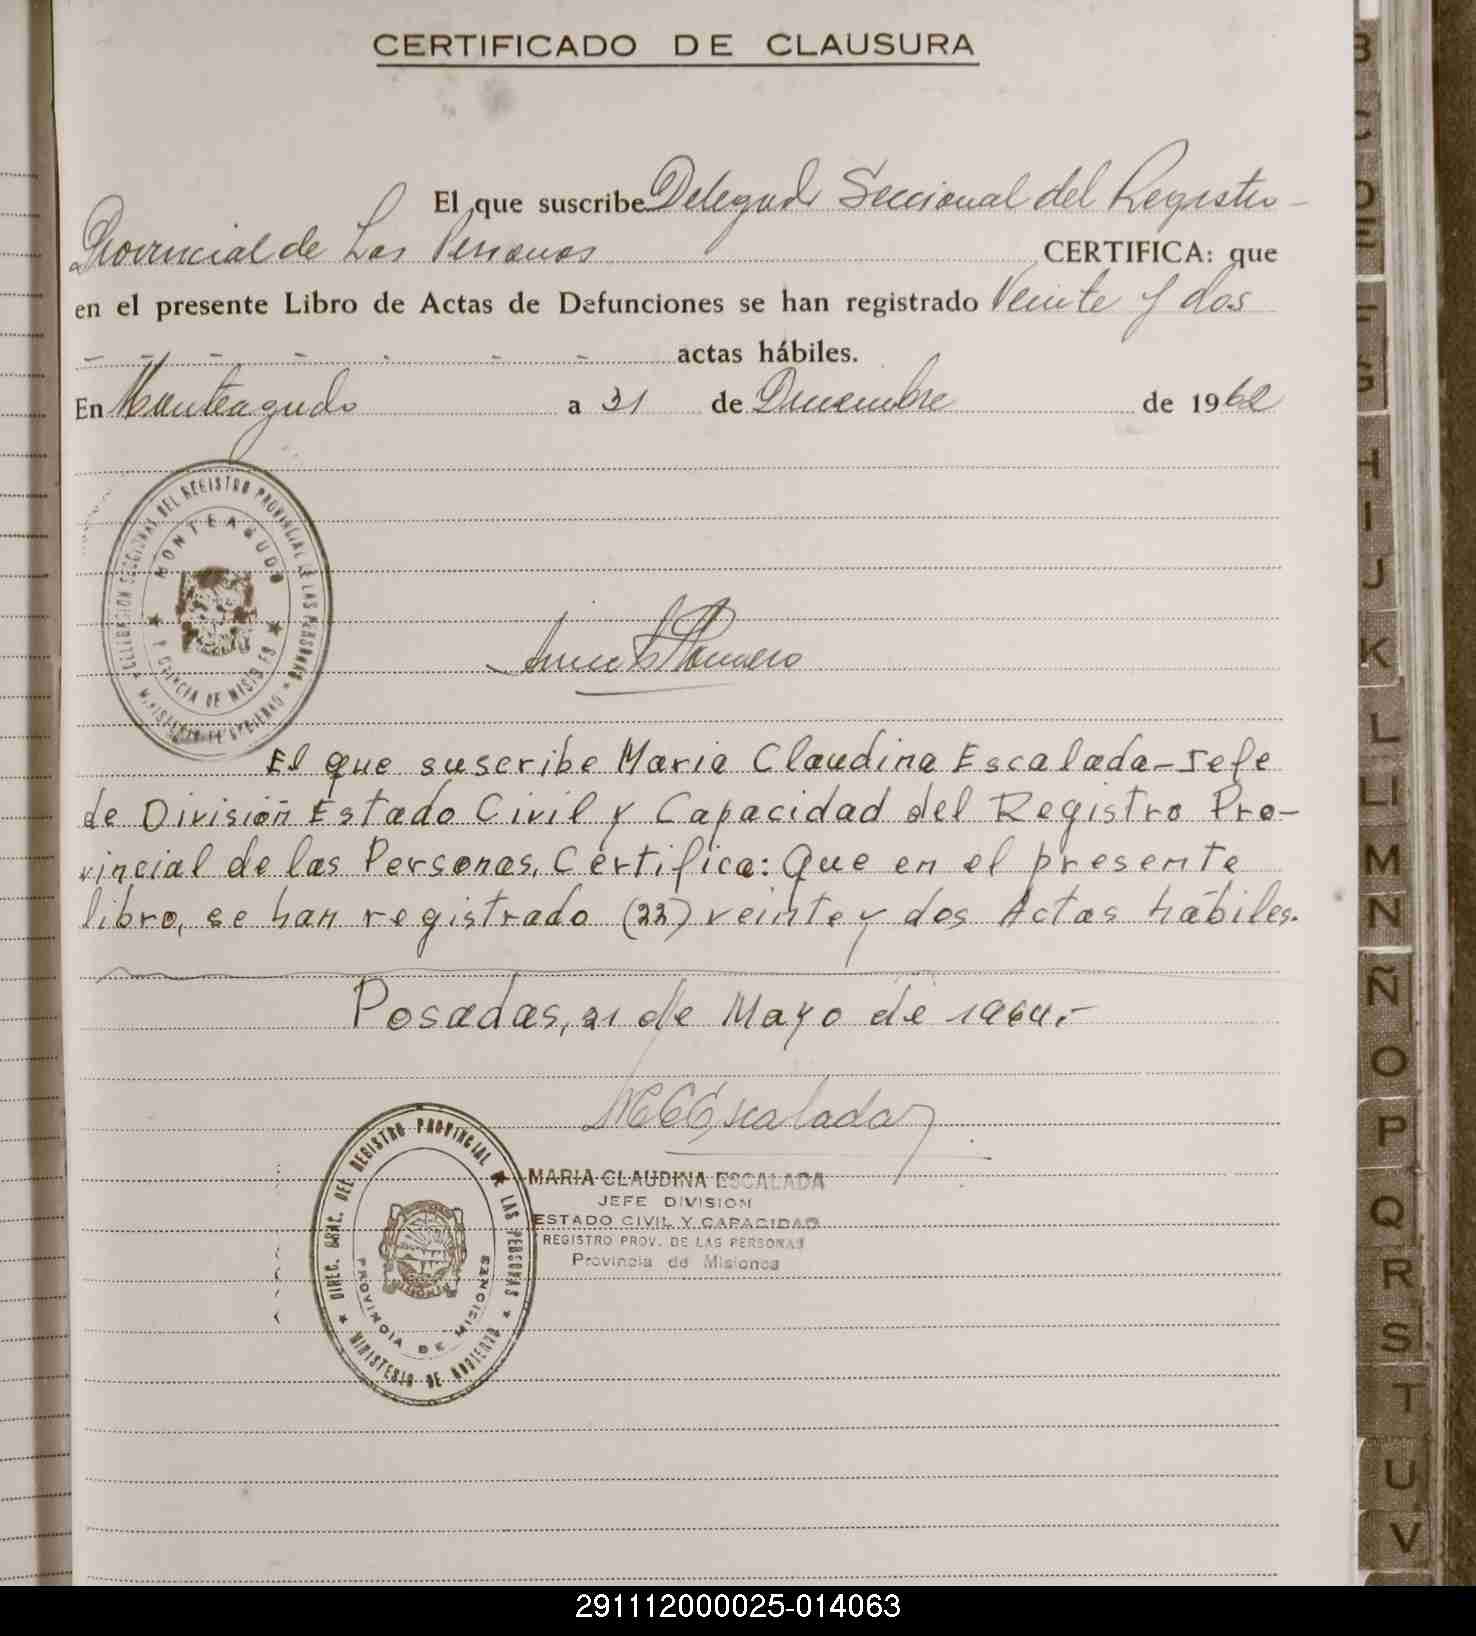 CERTIFICADO DE CLAUSURA
El que suscribe Delegado Seccional del Registro -
Provincial de Las Personas CERTIFICA: que
en el presente Libro de Actas de Defunciones se han registrado Veinte y dos
- - - - - - - actas hábiles.
En Monteagudo a 31 de Diciembre de 1962
DELEGACION SECCIONAL DEL REGISTRO PROVINCIAL DE LAS PERSONAS
MONTEAGUDO
PROVINCIA DE MISIONES
MINISTERIO DE GOBIERNO
Romero
El que suscribe Maria Claudina Escalada-Jefe
de División Estado Civil y Capacidad del Registro Pro-
vincial de las Personas, Certifica: Que en el presente
libro, se han registrado (22) veinte y dos Actas hábiles.
Posadas, 21 de Mayo de 1964.-
MCEscalada
MARIA CLAUDINA ESCALADA
JEFE DIVISION
ESTADO CIVIL Y CAPACIDAD
REGISTRO PROV. DE LAS PERSONAS
Provincia de Misiones
DIREC. GRAL. DEL REGISTRO PROVINCIAL DE LAS PERSONAS
PROVINCIA DE MISIONES
MINISTERIO DE GOBIERNO
B
C
D
E
F
G
H
I
J
K
L
LL
M
N
Ñ
O
P
Q
R
S
T
U
V
291112000025-014063